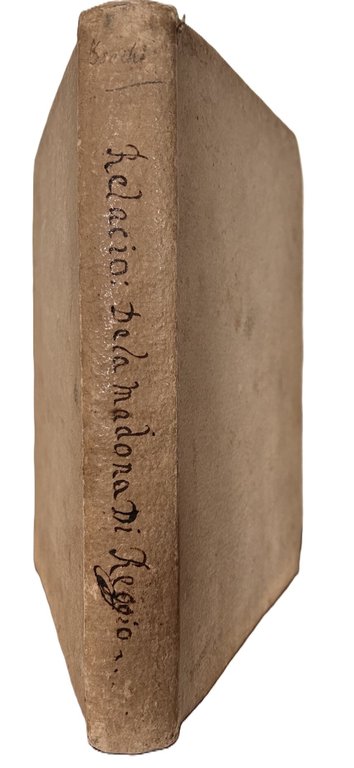 Bocchi
Relacio: De la madona Di Reggio